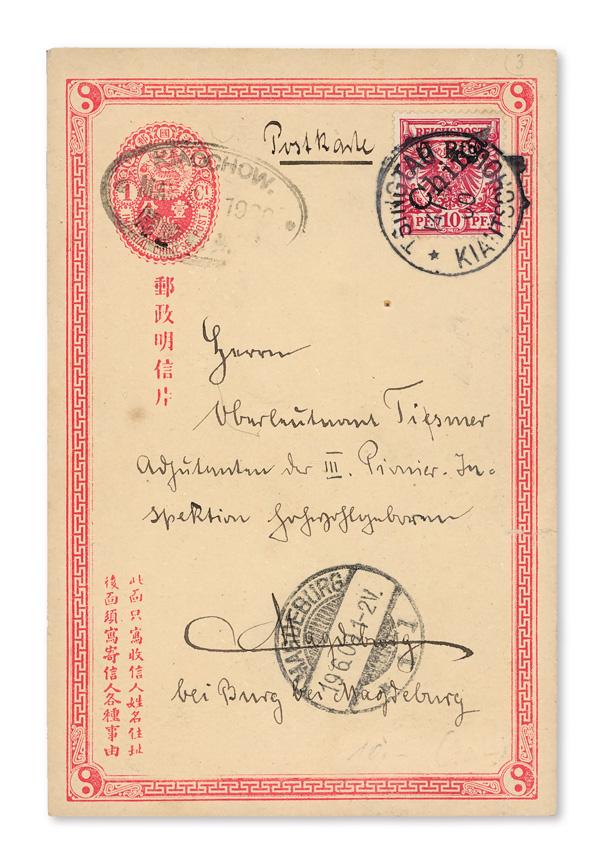 (3
Postkarte
KIAOCHOW.
1 Ct
壹
REICHSPOST
China
PF 10 PF
TSINGTAU
KIAUTSCHOU
郵政明信片
Herrn
Oberleutnant Tiesmer
Adjutanten der III. Pionier-In-
spektion Hochwohlgeboren
MAGDEBURG
19.6.0 1-2V.
Magdeburg
bei Burg bei Magdeburg
此面只寫收信人姓名住址
後面須寫寄信人各種事由